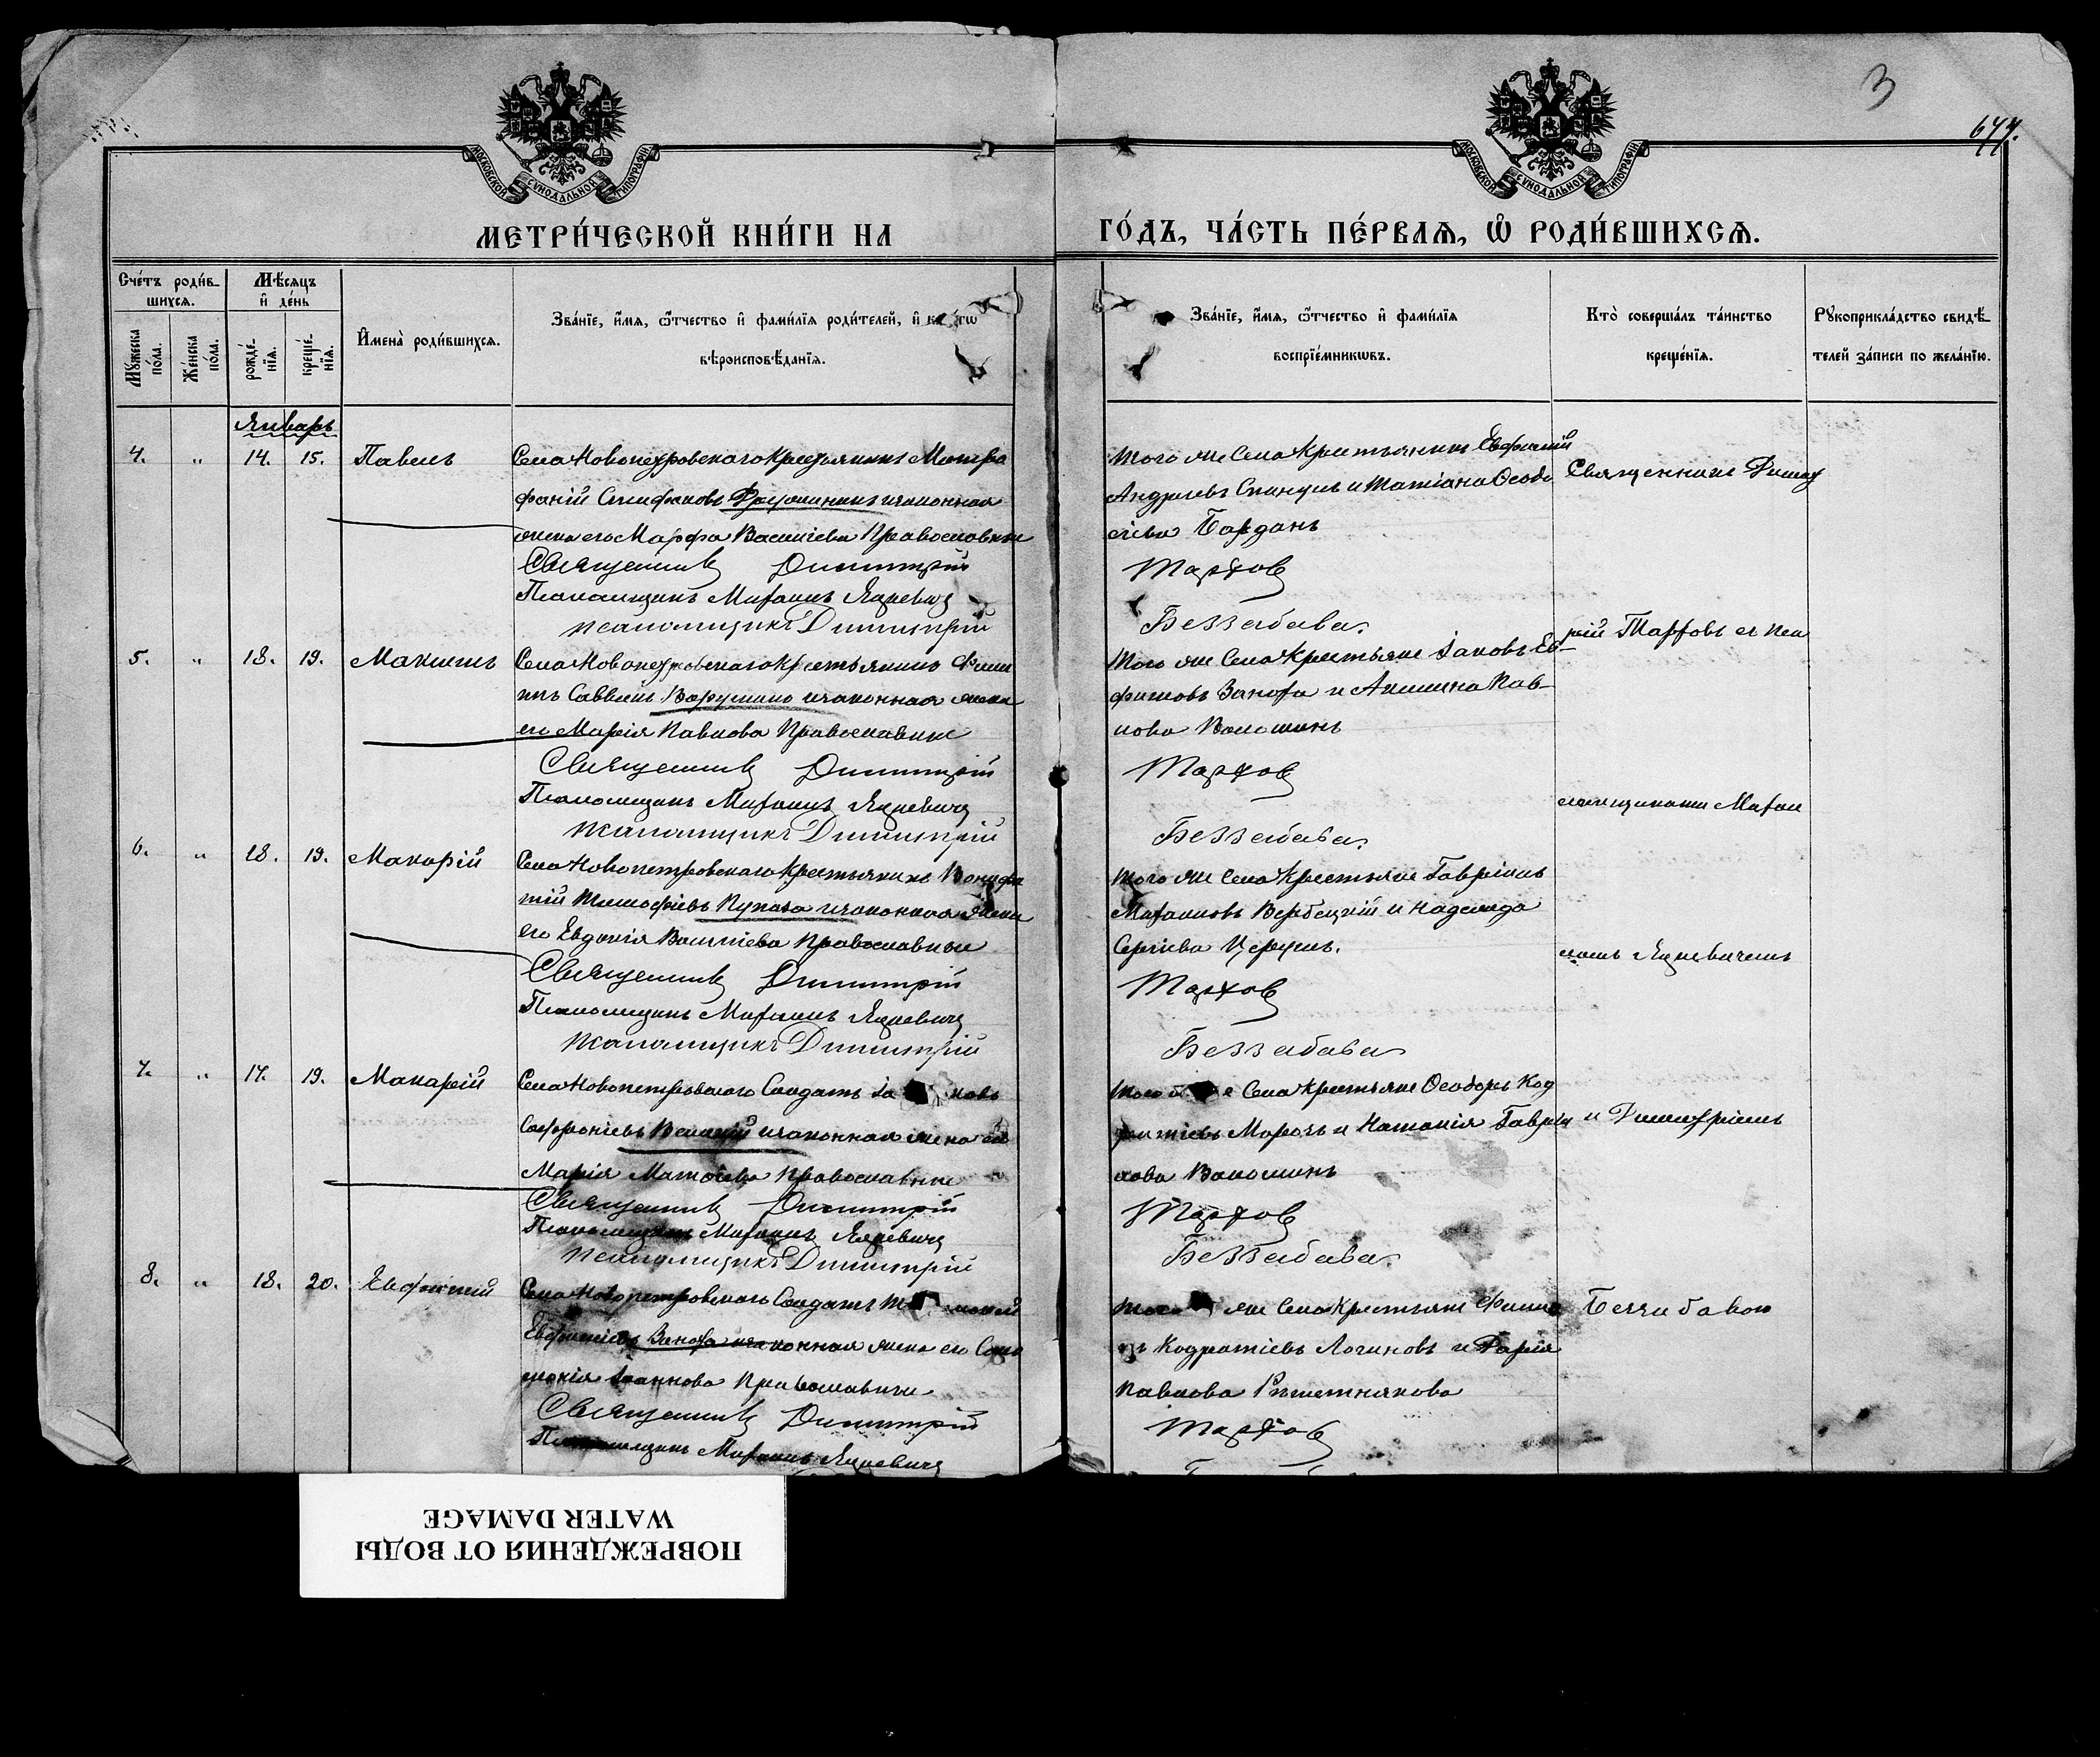 3
677.
МОСКОВСКОЙ СѴНОДАЛЬНОЙ ТИПОГРАФІИ
МОСКОВСКОЙ СѴНОДАЛЬНОЙ ТИПОГРАФІИ
МЕТРИ́ЧЕСКОЙ КНИ́ГИ НА
ГО́ДЪ, ЧА́СТЬ ПЕ́РВАѦ, Ѡ҆ РОДИ́ВШИХСѦ.
Сче́тъ роди́в-
шихсѧ.
Мꙋ́жеска по́ла.
Же́нска по́ла.
Мѣ́сѧцъ
и҆ де́нь
рожде́-
нїѧ.
креще́-
нїѧ.
И҆мена̀ роди́вшихсѧ.
Зва́нїе, и҆́мѧ, ѻ҆́тчество и҆ фами́лїѧ роди́телей, и҆
вѣроисповѣ́данїѧ.
Зва́нїе, и҆́мѧ, ѻ҆́тчество и҆ фами́лїѧ
воспрїе́мникѡвъ.
Кто̀ соверша́лъ та́инство
креще́нїѧ.
Рꙋкоприкла́дство свидѣ́-
телей за́писи по жела́нїю.
Январь
4. " 14. 15. Павелъ
Села Новопетровскаго крестьянинъ Митро
фаній Стефановъ и законная
жена его Марфа Василіева Православные
Священникъ Димитрій
Псаломщикъ Михаилъ Яцкевичъ
Псаломщикъ Димитрій
Того же Села Крестьянинъ Евфимій
Андреевъ и Татіана Ѳеодо
сіева
Тарховъ
Беззабава.
Священникъ Димит
5. " 18. 19. Максимъ
Села Новопетровскаго Крестьянинъ Фили
ппъ Саввинъ и законная жена
его Марія Павлова Православные
Священникъ Димитрій
Псаломщикъ Михаилъ Яцкевичъ
Псаломщикъ Димитрій
Того же Села Крестьяне Іаковъ Ев-
фимовъ Заноза и Акилина Пав-
лова Волошинъ
Тарховъ
Беззабава.
рій Тарховъ съ пса
ломщиками Михаи
6. " 18. 19. Макарій
Села Новопетровскаго Крестьянинъ Вонифа
тій Тимофіевъ и законная жена
его Евдокія Василіева Православные
Священникъ Димитрій
Псаломщикъ Михаилъ Яцкевичъ
Псаломщикъ Димитрій
Того же Села Крестьяне Гавріилъ
Михаиловъ Вербецкій и Надежда
Сергіева
Тарховъ
Беззабава
ломъ Яцкевичемъ
7. " 17. 19. Макарій
Села Новопетровскаго Солдатъ
Софроніевъ и законная жена его
Марія Матѳіева Православные
Священникъ Димитрій
Псаломщикъ Михаилъ Яцкевичъ
Псаломщикъ Димитрій
Села Крестьяне Ѳеодоръ Код
ратіевъ Марочъ и Наталія Гаврiи
лова Волошинъ
Тарховъ
Беззабава.
и Димитріемъ
8. " 18. 20. Евфимій
Села Новопетровскаго Солдатъ
Евфиміевъ Заноза и законная жена его Соло
монія Іоаннова Православные
Священникъ Димитрій
Михаилъ Яцкевичъ
же Села Крестьяне Фили
пъ Кодратіевъ Логиновъ и Дарія
Павлова Решетнякова
Тарховъ
Беззабавою
ПОВРЕЖДЕНИЯ ОТ ВОДЫ
WATER DAMAGE